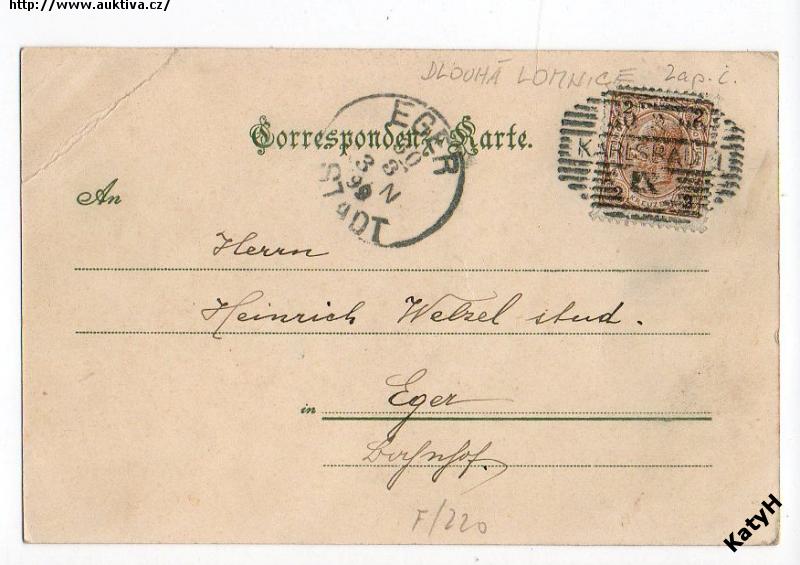 http://www.auktiva.cz/
DLOUHÁ LOMNICE Zap. č.
Correspondenz-Karte.
EGER
KARLSBAD
2 2
KREUZER
2 2
An
Herrn
Heinrich Welzel stud.
in Eger
Bahnhof.
F/220
KatyH